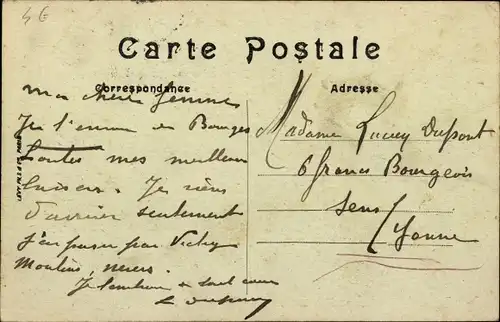 4 €
Carte Postale
Correspondance
Adresse
Ma chère femme
Je t'envoie de Bourges
toutes mes meilleurs
baisers. Je viens
d'arriver seulement
j'ai passer par Vichy
Moulins, nevers.
Je t'embrasse de tout cœur
L Dupont
Madame Lucey Dupont
6 francs Bourgeois
Sens
Yonne